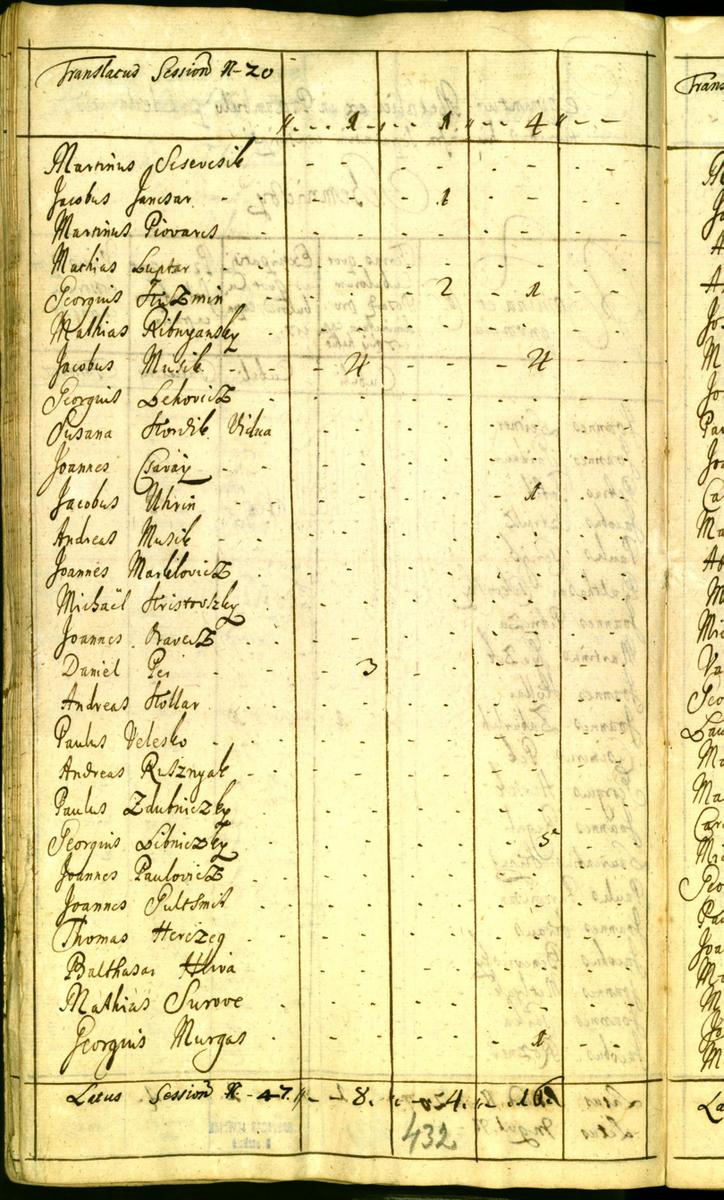 Translatus Session N-20 1 1 4
Martinus
Jacobus Jancsar 1
Martinus Piovarcs
Mathias Luptar
Georgius Kuzmin 2 1
Mathias Ribnyansky
Jacobus Musik 4 4
Georgius Lehovicz
Susana Kordik Vidua
Joannes Csavay
Jacobus Uhrin 1
Andreas Musik
Joannes Markovicz
Michaël Kristovszky
Joannes Kravecz
Daniel Pei 3
Andreas Kollar
Paulus Velesko
Andreas Rusznyak
Paulus Zdubniczky
Georgius Libniczky 5
Joannes Paulovicz
Joannes Pultsmit
Thomas Herczeg
Balthasar Hliva
Mathias Surove
Georgius Murgas 1
Latus Session N-47. 8. 4. 16
432